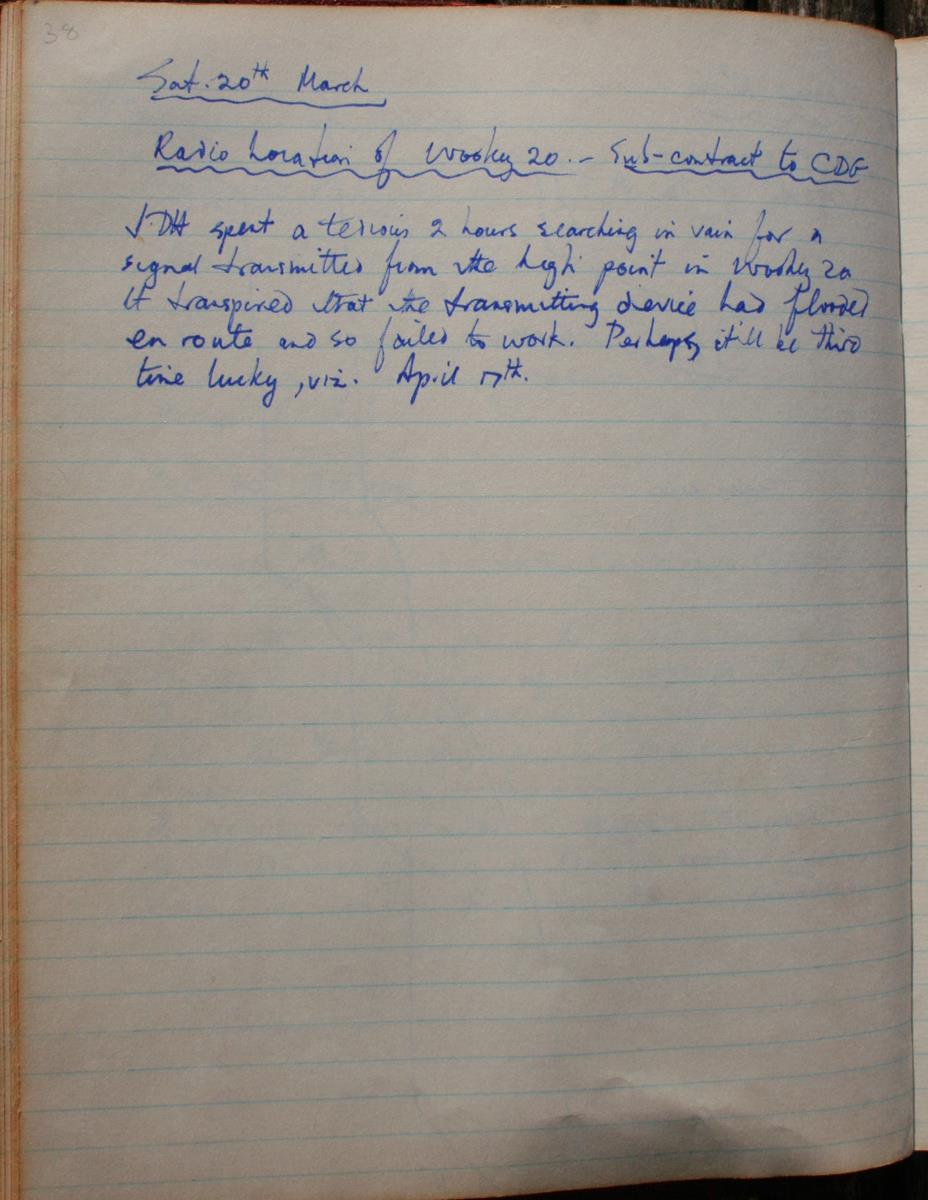 38
Sat. 20th March
Radio Location of Wookey 20. - Sub-contract to CDG
JDH spent a tedious 2 hours searching in vain for a
signal transmitted from the high point in Wookey 20
It transpired that the transmitting device had flooded
en route and so failed to work. Perhaps, it'll be third
time lucky, viz. April 17th.